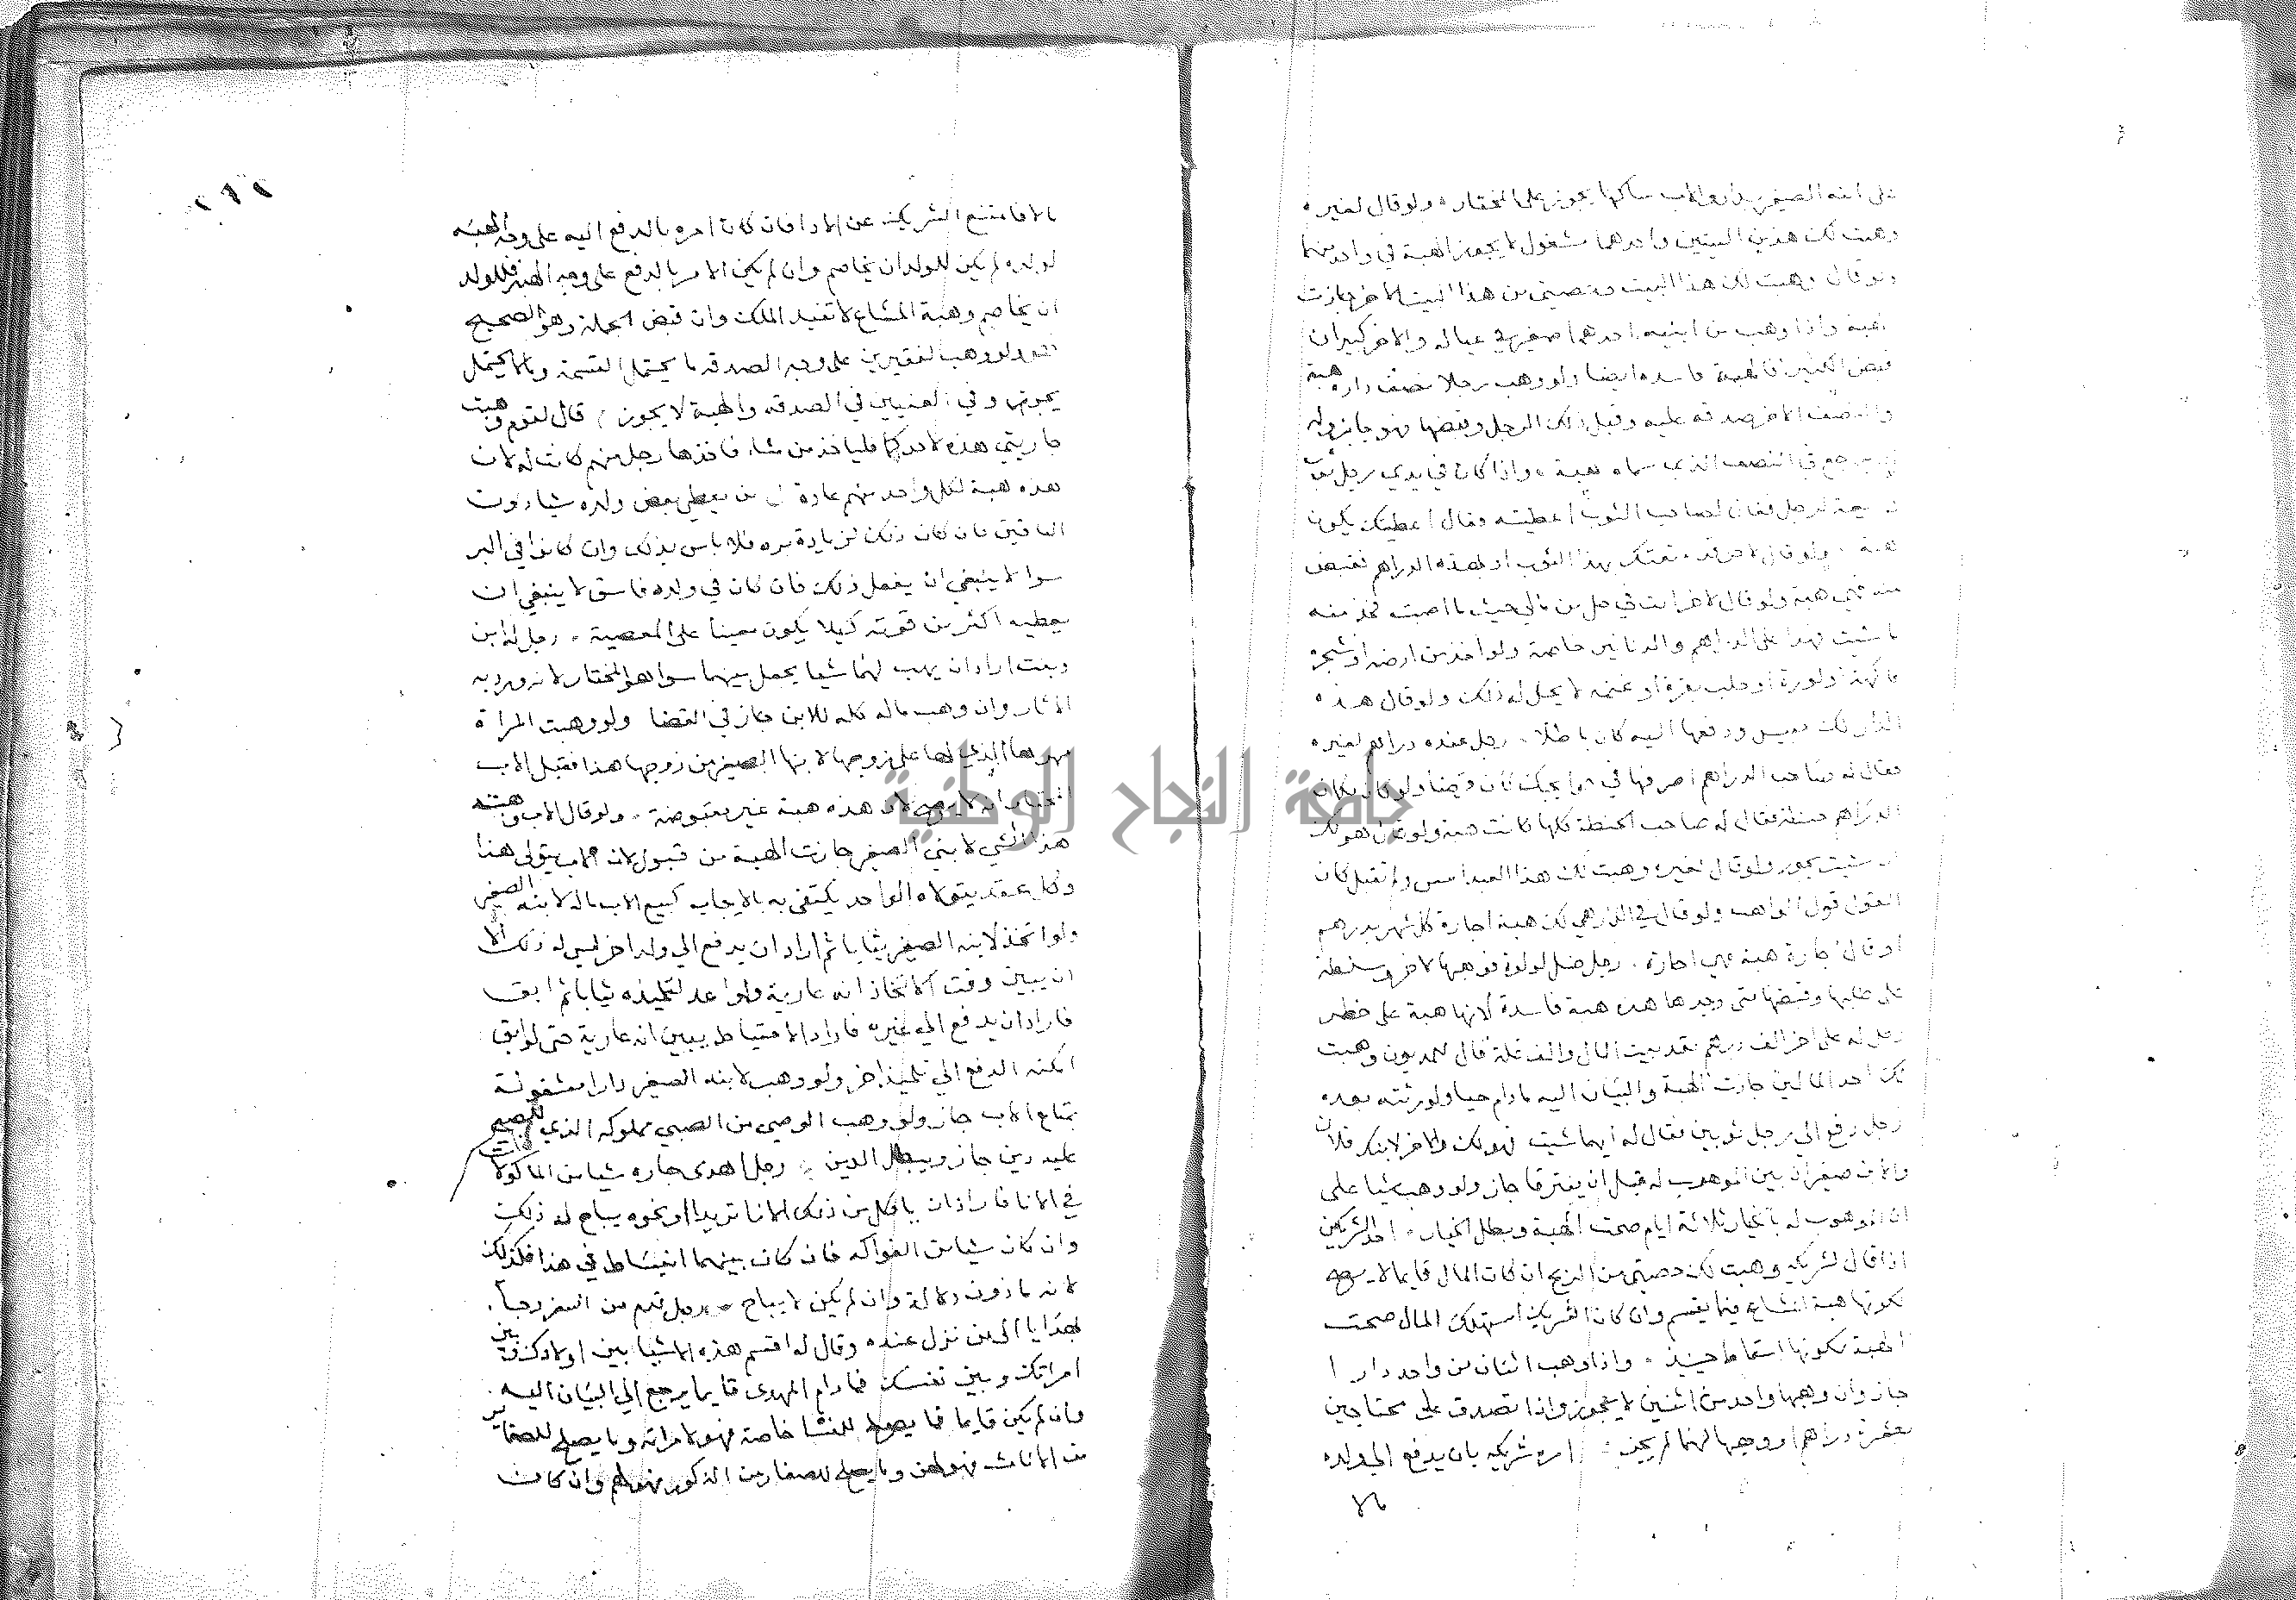 على ابنه الصغير بدار والاب ساكنها يجوز على المختار ولو قال لغيره
وهبت لك هذين البيتين واحدهما مشغول لا يجوز الهبة في واحد منهما
ولو قال وهبت لك هذا البيت وحصتي من هذا البيت الاخر جازت
الهبة واذا وهب من ابنيه احدهما صغير في عياله والاخر كبير ان
قبض الكبير فالهبة فاسدة ايضا ولو وهب رجلا نصف داره هبة
والنصف الاخر صدقة عليه وقبل ذلك الرجل وقبضها فهو جايز وله
ان يرجع في النصف الذي سماه هبة واذا كان في يدي رجل ثوب
وديعة لرجل فقال لصاحب الثوب اعطيتنيه فقال اعطيتك يكون
هبة ولو قال لاخر قد متعتك بهذا الثوب او بهذه الدراهم فقبض
منه فهي هبة ولو قال لاخر انت في حل من مالي حيث ما اصبت فخذ منه
ما شيت فهذا على الدراهم والدنانير خاصة ولو اخذ من ارضه او شجرة
فاكهة او لوزة او حلب بقرة او غنمه لا يحل له ذلك ولو قال هذه
الدار لك حبيس ودفعها اليه كان باطلا رجل عنده دراهم لغيره
فقال له صاحب الدراهم اصرفها في حوايجك كان قرضا ولو كان مكان
الدراهم حنطة فقال له صاحب الحنطة كلها كانت هبة ولو قال هو لك
ان شيت يجوز ولو قال لغيره وهبت لك هذا العبد امس ولم تقبل كان
القول قول الواهب ولو قال في الدار هي لك هبة اجارة كل شهر بدرهم
او قال اجارة هبة فهي اجارة رجل ضل لولوة فوهبها لاخر وسلطه
على طلبها وقبضها متى وجدها هذه هبة فاسدة لانها هبة على خطر
رجل له على اخر الف درهم نقد بيت المال والف غلة قال للمديون وهبت
لك احد المالين جازت الهبة والبيان اليه ما دام حيا ولورثته بعده
رجل دفع الى رجل ثوبين فقال له ايهما شيت فهو لك والاخر لابنك فلان
والابن صغير ان بين الموهوب له قبل ان يفترقا جاز ولو وهب شيا على
ان الموهوب له بالخيار ثلاثة ايام صحت الهبة وبطل الخيار احد الشريكين
اذا قال لشريكه وهبت لك حصتي من الربح ان كان المال قايما لا يصح
لكونها هبة المشاع فيما يقسم وان كان الشريك استهلك المال صحت
الهبة لكونها اسقاطا حينيذ واذا وهب اثنان من واحد دارا
جاز وان وهبها واحد من اثنين لا يجوز واذا تصدق على محتاجين
بعشرة دراهم او وهبها لهما لم يجز امر شريكه بان يدفع الى ولده
مالا
مالا فامتنع الشريك عن الادا فان كان امره بالدفع اليه على وجه الهبة
لولده لم يكن للولد ان يخاصم وان لم يكن الامر بالدفع على وجه الهبة فللولد
ان يخاصم وهبة المشاع لا تفيد الملك وان قبض الجملة وهو الصحيح
ولو وهب لفقيرين على وجه الصدقة ما يحتمل القسمة وما لا يحتمل
يجوز وفي الغنيين في الصدقة والهبة لا يجوز قال لقوم وهبت
جاريتي هذه لاحدكم فلياخذ من شاء فاخذها رجل منهم كانت له لان
هذه هبة لكل واحد منهم عادة من يعطي بعض ولده شيا دون
الباقين فان كان ذلك لزيادة بره فلا باس بذلك وان كانوا في البر
سوا لا ينبغي ان يفعل ذلك فان كان في ولده فاسق لا ينبغي ان
يعطيه اكثر من قوته كيلا يكون معينا على المعصية رجل له ابن
وبنت اراد ان يهب لهما شيا يجعل بينهما سوا هو المختار لانه ورد به
الاثار وان وهب ماله كله للابن جاز في القضا ولو وهبت المراة
مهرها الذي لها على زوجها لابنها الصغير من زوجها هذا فقبل الاب
المختار انه لا يصح لان هذه هبة غير مقبوضة ولو قال الاب وهبت
هذا الشي لابني الصغير جازت الهبة من قبول لان الاب يتولى هذا
وكل عقد يتولاه الواحد يكتفي به بالايجاب كبيع الاب ماله لابنه الصغير
ولو اتخذ لابنه الصغير ثيابا ثم اراد ان يدفع الى ولد اخر ليس له ذلك الا
ان يبين وقت الاتخاذ انه عارية ولو اعد لتلميذه ثيابا ثم ابق
فاراد ان يدفع الى غيره فاراد الاحتياط يبين انه عارية حتى لو ابق
امكنه الدفع الى تلميذ اخر ولو وهب لابنه الصغير دارا مشغولة
بمتاع الاب جاز ولو وهب الوصي من الصبي مملوكه الذي للصبي
عليه دين جاز ويبطل الدين رجل اهدى جاره شيا من الماكولات
في الانا فاراد ان ياكل من ذلك الانا ثريدا او نحوه يباح له ذلك
وان كان شيا من الفواكه فان كان بينهما انبساط في هذا فكذلك
لانه ماذون دلالة وان لم يكن لا يباح رجل قدم من السفر وجا
بهدايا الى من نزل عنده وقال له اقسم هذه الاشيا بين اولادك وبين
امراتك وبين نفسك فما دام المهدي قايما يرجع الى البيان اليه
وان لم يكن قايما فما يصلح للنسا خاصة فهو لامراته وما يصلح للصغاير
من الاناث فهو لهن وما يصلح للصغار من الذكور فهو لهم وان كانت
جامعة النجاح الوطنية